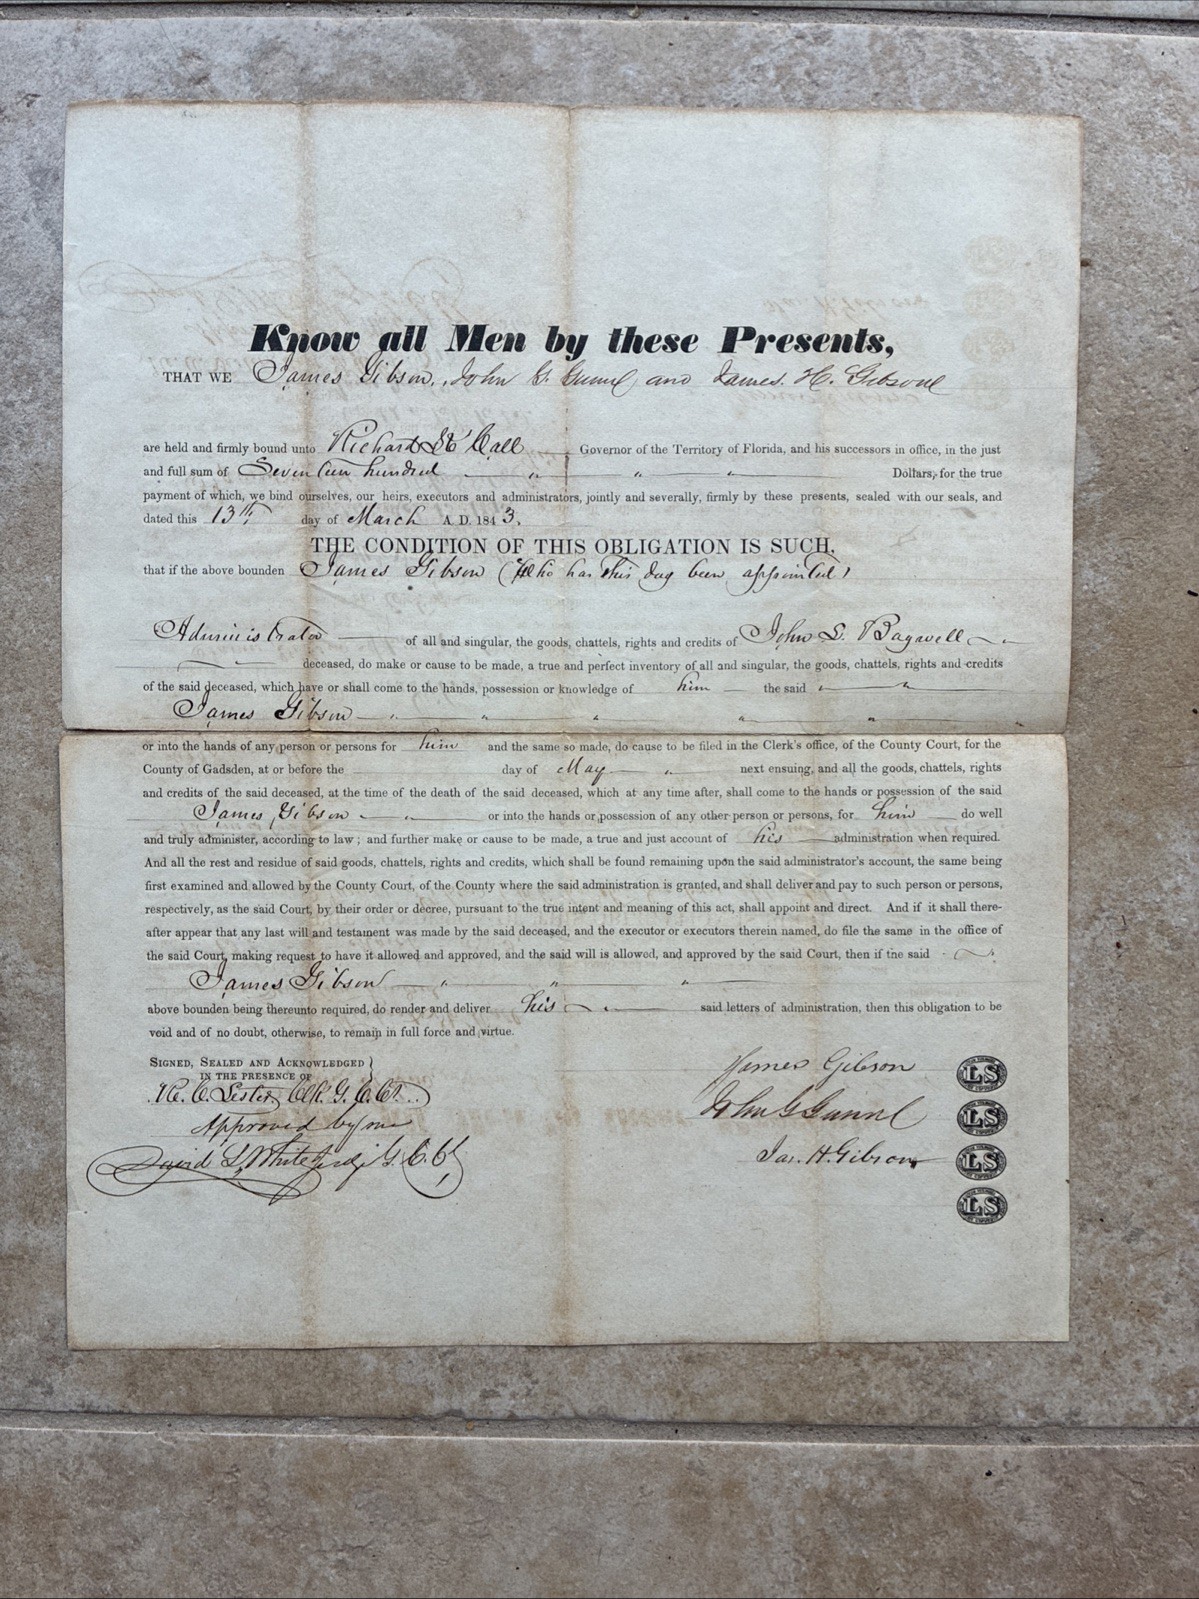 Know all Men by these Presents,
THAT WE James Gibson, John G. Gunn and James. H. Gibson
are held and firmly bound unto Richard K Call Governor of the Territory of Florida, and his successors in office, in the just
and full sum of Seventeen hundred " " " Dollars, for the true
payment of which, we bind ourselves, our heirs, executors and administrators, jointly and severally, firmly by these presents, sealed with our seals, and
dated this 13th day of March A. D. 1843.
THE CONDITION OF THIS OBLIGATION IS SUCH,
that if the above bounden James Gibson (Who has this day been appointed)
Administrator of all and singular, the goods, chattels, rights and credits of John S. Bagwell
deceased, do make or cause to be made, a true and perfect inventory of all and singular, the goods, chattels, rights and credits
of the said deceased, which have or shall come to the hands, possession or knowledge of him the said " "
James Gibson " " " " "
or into the hands of any person or persons for him and the same so made, do cause to be filed in the Clerk's office, of the County Court, for the
County of Gadsden, at or before the day of May " next ensuing, and all the goods, chattels, rights
and credits of the said deceased, at the time of the death of the said deceased, which at any time after, shall come to the hands or possession of the said
James Gibson " or into the hands or possession of any other person or persons, for him do well
and truly administer, according to law; and further make or cause to be made, a true and just account of his administration when required.
And all the rest and residue of said goods, chattels, rights and credits, which shall be found remaining upon the said administrator's account, the same being
first examined and allowed by the County Court, of the County where the said administration is granted, and shall deliver and pay to such person or persons,
respectively, as the said Court, by their order or decree, pursuant to the true intent and meaning of this act, shall appoint and direct. And if it shall there-
after appear that any last will and testament was made by the said deceased, and the executor or executors therein named, do file the same in the office of
the said Court, making request to have it allowed and approved, and the said will is allowed, and approved by the said Court, then if the said
James Gibson " " "
above bounden being thereunto required, do render and deliver his " said letters of administration, then this obligation to be
void and of no doubt, otherwise, to remain in full force and virtue.
SIGNED, SEALED AND ACKNOWLEDGED }
IN THE PRESENCE OF
C. Lester Clk. G. C. Ct.
Approved by me
David L. White Judg G. C. Ct
James Gibson
John G Gunn
Jas. H. Gibson
LS
LS
LS
LS